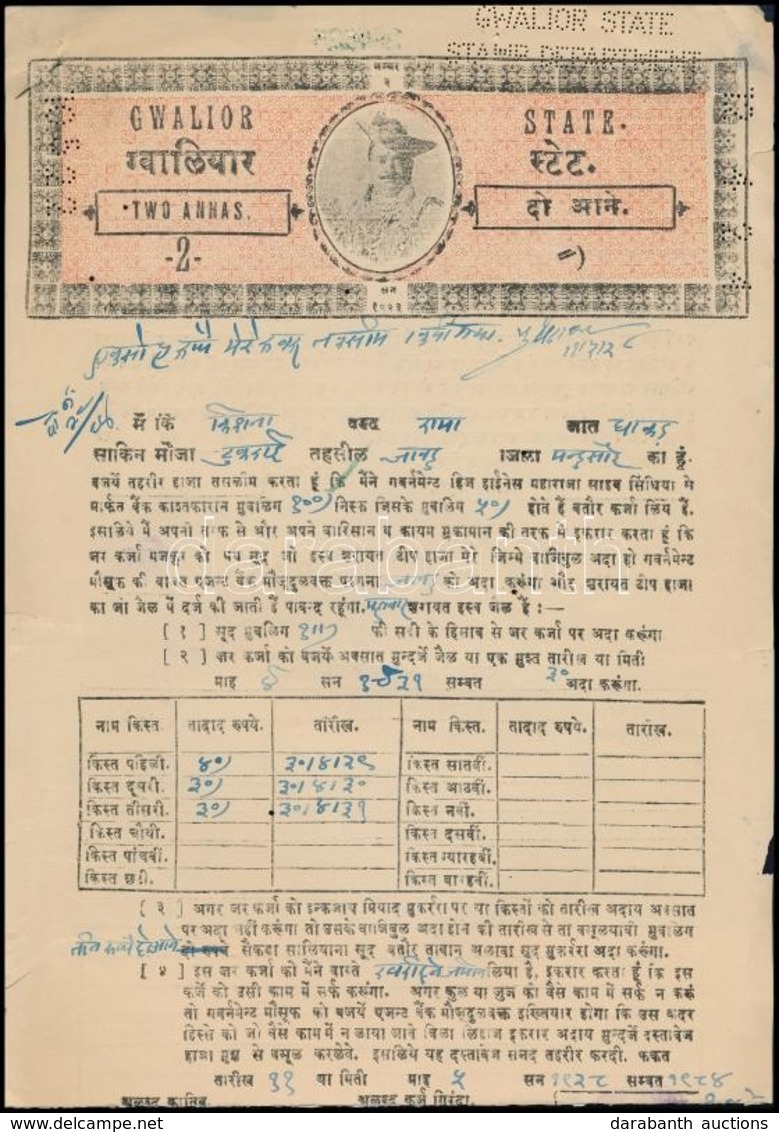 GWALIOR STATE
STAMP DEPARTMENT
नम्बर
२
GWALIOR STATE.
ग्वालियार स्टेट.
TWO ANNAS. दो आने.
-2- =)
सन
मैं कि किशना वल्द रामा जात धाकड
साकिन मौजा तहसील जावद ज़िला मन्दसौर का हूं.
बजर्ये तहरीर हाजा तसलीम करता हूं कि मैंने गवर्नमेन्ट हिज हाईनेस महाराजा साहब सिंधिया से
मार्फत बैंक काश्तकारान मुबलिग १००) निस्फ जिसके मुबलिग ५०) होते हैं बतौर कर्जा लिये हैं.
इसलिये मैं अपनी तर्फ से और अपने वारिसान व कायम मुकामान की तरफ से इकरार करता हूं कि
जर कर्जा मजकूर को मय सूद जो हस्ब शरायत टीप हाजा मेरे जिम्मे वाजिबुल अदा हो गवर्नमेन्ट
मौसूफ की बास्त एजन्ट बैंक मौजूदुलवक्त परगना जावद को अदा करूंगा और शरायत टीप हाजा
का जो जैल में दर्ज की जाती हैं पाबन्द रहूंगा. शरायत हस्ब जैल हैं :—
[ १ ] सूद मुबलिग १॥) फी सदी के हिसाब से जर कर्जा पर अदा करूंगा
[ २ ] ज़र कर्जा को बजर्ये अक्सात मुन्दर्जे जैल या एक मुश्त तारीख या मिती
माह ४ सन १९३१ सम्बत अदा करूंगा.
नाम किस्त. तादाद रुपये. तारीख. नाम किस्त. तादाद रुपये. तारीख.
किस्त पहिली. ४०) ३०।४।२९ किस्त सातवीं.
किस्त दूसरी. ३०) ३०।४।३० किस्त आठवीं.
किस्त तीसरी. ३०) ३०।४।३१ किस्त नवीं.
किस्त चौथी. किस्त दसवीं.
किस्त पांचवीं. किस्त ग्यारहवीं.
किस्त छटी. किस्त बारहवीं.
[ ३ ] अगर जर कर्जा को इन्कजाय मियाद मुकर्ररा पर या किस्तों को तारीख अदाय अक्सात
पर अदा नहीं करूंगा तो उसके वाजिबुल अदा होने की तारीख से ता वसूलयाबी मुबलिग
सैकडा सालियाना सूद बतौर तावान अलावा सूद मुकर्ररा अदा करूंगा.
[ ४ ] इस जर कर्जा को मैंने वास्ते लिया है, इकरार करता हूं कि इस
कर्जे को उसी काम में सर्फ करूंगा. अगर कुल या जुज को वैसे काम में सर्फ न करूं
तो गवर्नमेन्ट मौसूफ को बजर्ये एजन्ट बैंक मौजूदुलवक्त इख्तियार होगा कि उस कदर
हिस्से को जो वैसे काम में न लाया जावे बिला लिहाज इकरार अदाय मुन्दर्जे दस्तावेज
हाजा मुझ से वसूल करलेवे. इसलिये यह दस्तावेज सनद तहरीर करदी. फकत
तारीख ११ या मिती माह ५ सन १९२८ सम्बत १९८४
अलब्द कातिब. अलब्द कर्ज गिरंदा.
darabanth
darabanth auctions